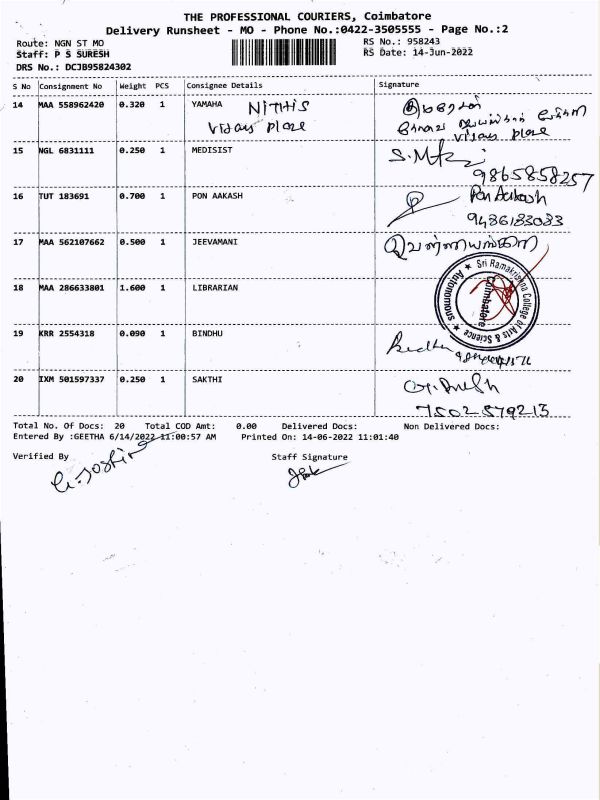 THE PROFESSIONAL COURIERS, Coimbatore
Delivery Runsheet - MO - Phone No.:0422-3505555 - Page No.:2
Route: NGN ST MO
RS No.: 958243
Staff: P S SURESH
RS Date: 14-Jun-2022
DRS No.: DCJB95824302
S No Consignment No Weight PCS Consignee Details Signature
14 MAA 558962420 0.320 1 YAMAHA NITHIS
place
place
15 NGL 6831111 0.250 1 MEDISIST
9865858257
16 TUT 183691 0.700 1 PON AAKASH Pon Aakash
9486183083
17 MAA 562107662 0.500 1 JEEVAMANI
18 MAA 286633801 1.600 1 LIBRARIAN
Sri Ramakrishna College of Arts & Science
Autonomous
Coimbatore
19 KRR 2554318 0.090 1 BINDHU
Bindhu
20 IXM 501597337 0.250 1 SAKTHI
7502579213
Total No. Of Docs: 20 Total COD Amt: 0.00 Delivered Docs: Non Delivered Docs:
Entered By :GEETHA 6/14/2022 11:00:57 AM Printed On: 14-06-2022 11:01:40
Verified By Staff Signature